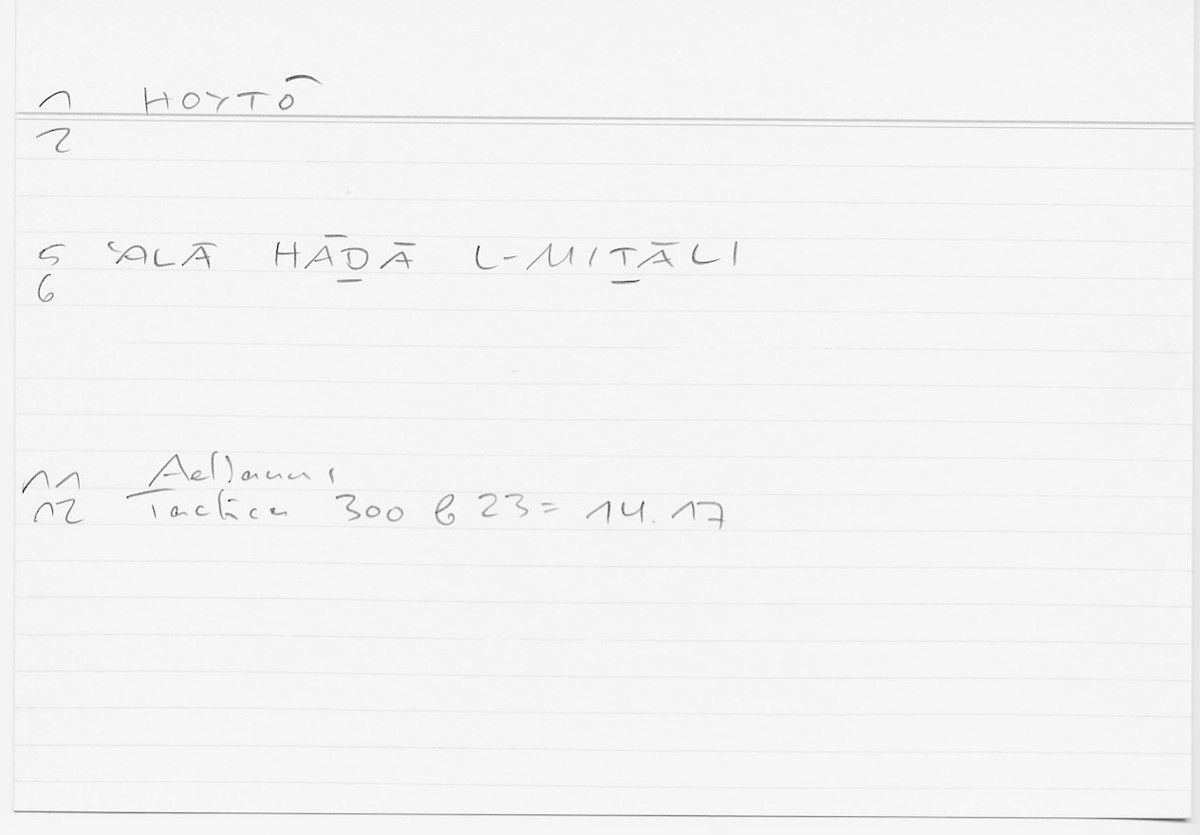 1 HOYTŌ
2
5 ʿALĀ HĀḎĀ L-MIṮĀLI
6
11 Aelianus
12 Tactica 300 b 23 = 14.17